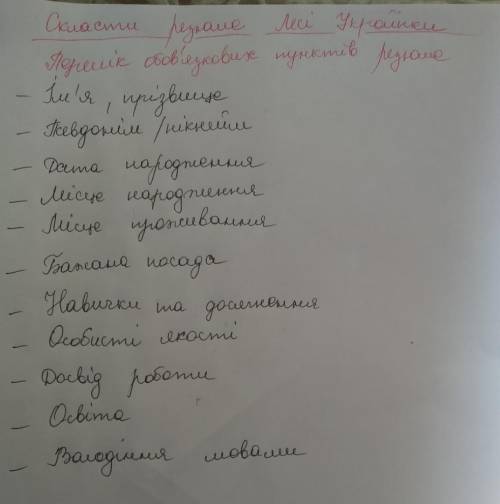 Скласти резюме Лесі Українки
Перелік обов'язкових пунктів резюме
– Ім'я, прізвище
– Псевдонім / нікнейм
– Дата народження
– Місце народження
– Місце проживання
– Бажана посада
– Навички та досягнення
– Особисті якості
– Досвід роботи
– Освіта
– Володіння мовами